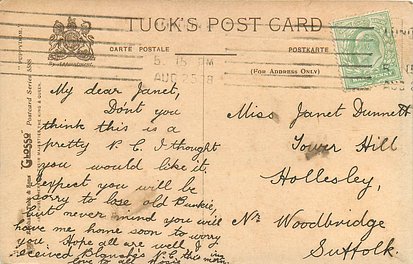 TUCK'S POST CARD
CARTE POSTALE
POSTKARTE
(For Address Only)
5. 15 PM
AUG 25
"Glosso" Postcard Series
My dear Janet,
Dont you
think this is a
pretty P.C. I thought
you would like it.
expect you will be
sorry to lose old
but never mind you will
have me home soon to worry
you. Hope all are well. I
received Blanche's P.C. this morn.
love to all
Miss Janet Dunnett
Tower Hill
Hollesley,
Nr Woodbridge
Suffolk.